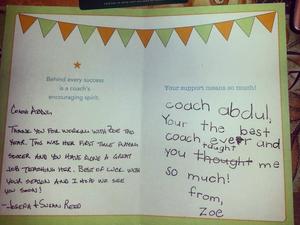 Behind every success
is a coach's
encouraging spirit.
COACH ABDUL,
THANK YOU FOR WORKING WITH ZOE THIS
YEAR. THIS WAS HER FIRST TIME PLAYING
SOCCER AND YOU HAVE DONE A GREAT
JOB TEACHING HER. BEST OF LUCK WITH
YOUR SEASON AND I HOPE WE SEE
YOU SOON!
-JOSEPH & SUSAN REED
Your support means so much!
coach abdul,
Your the best
coach ever and
you thought taught me
so much!
from,
zoe